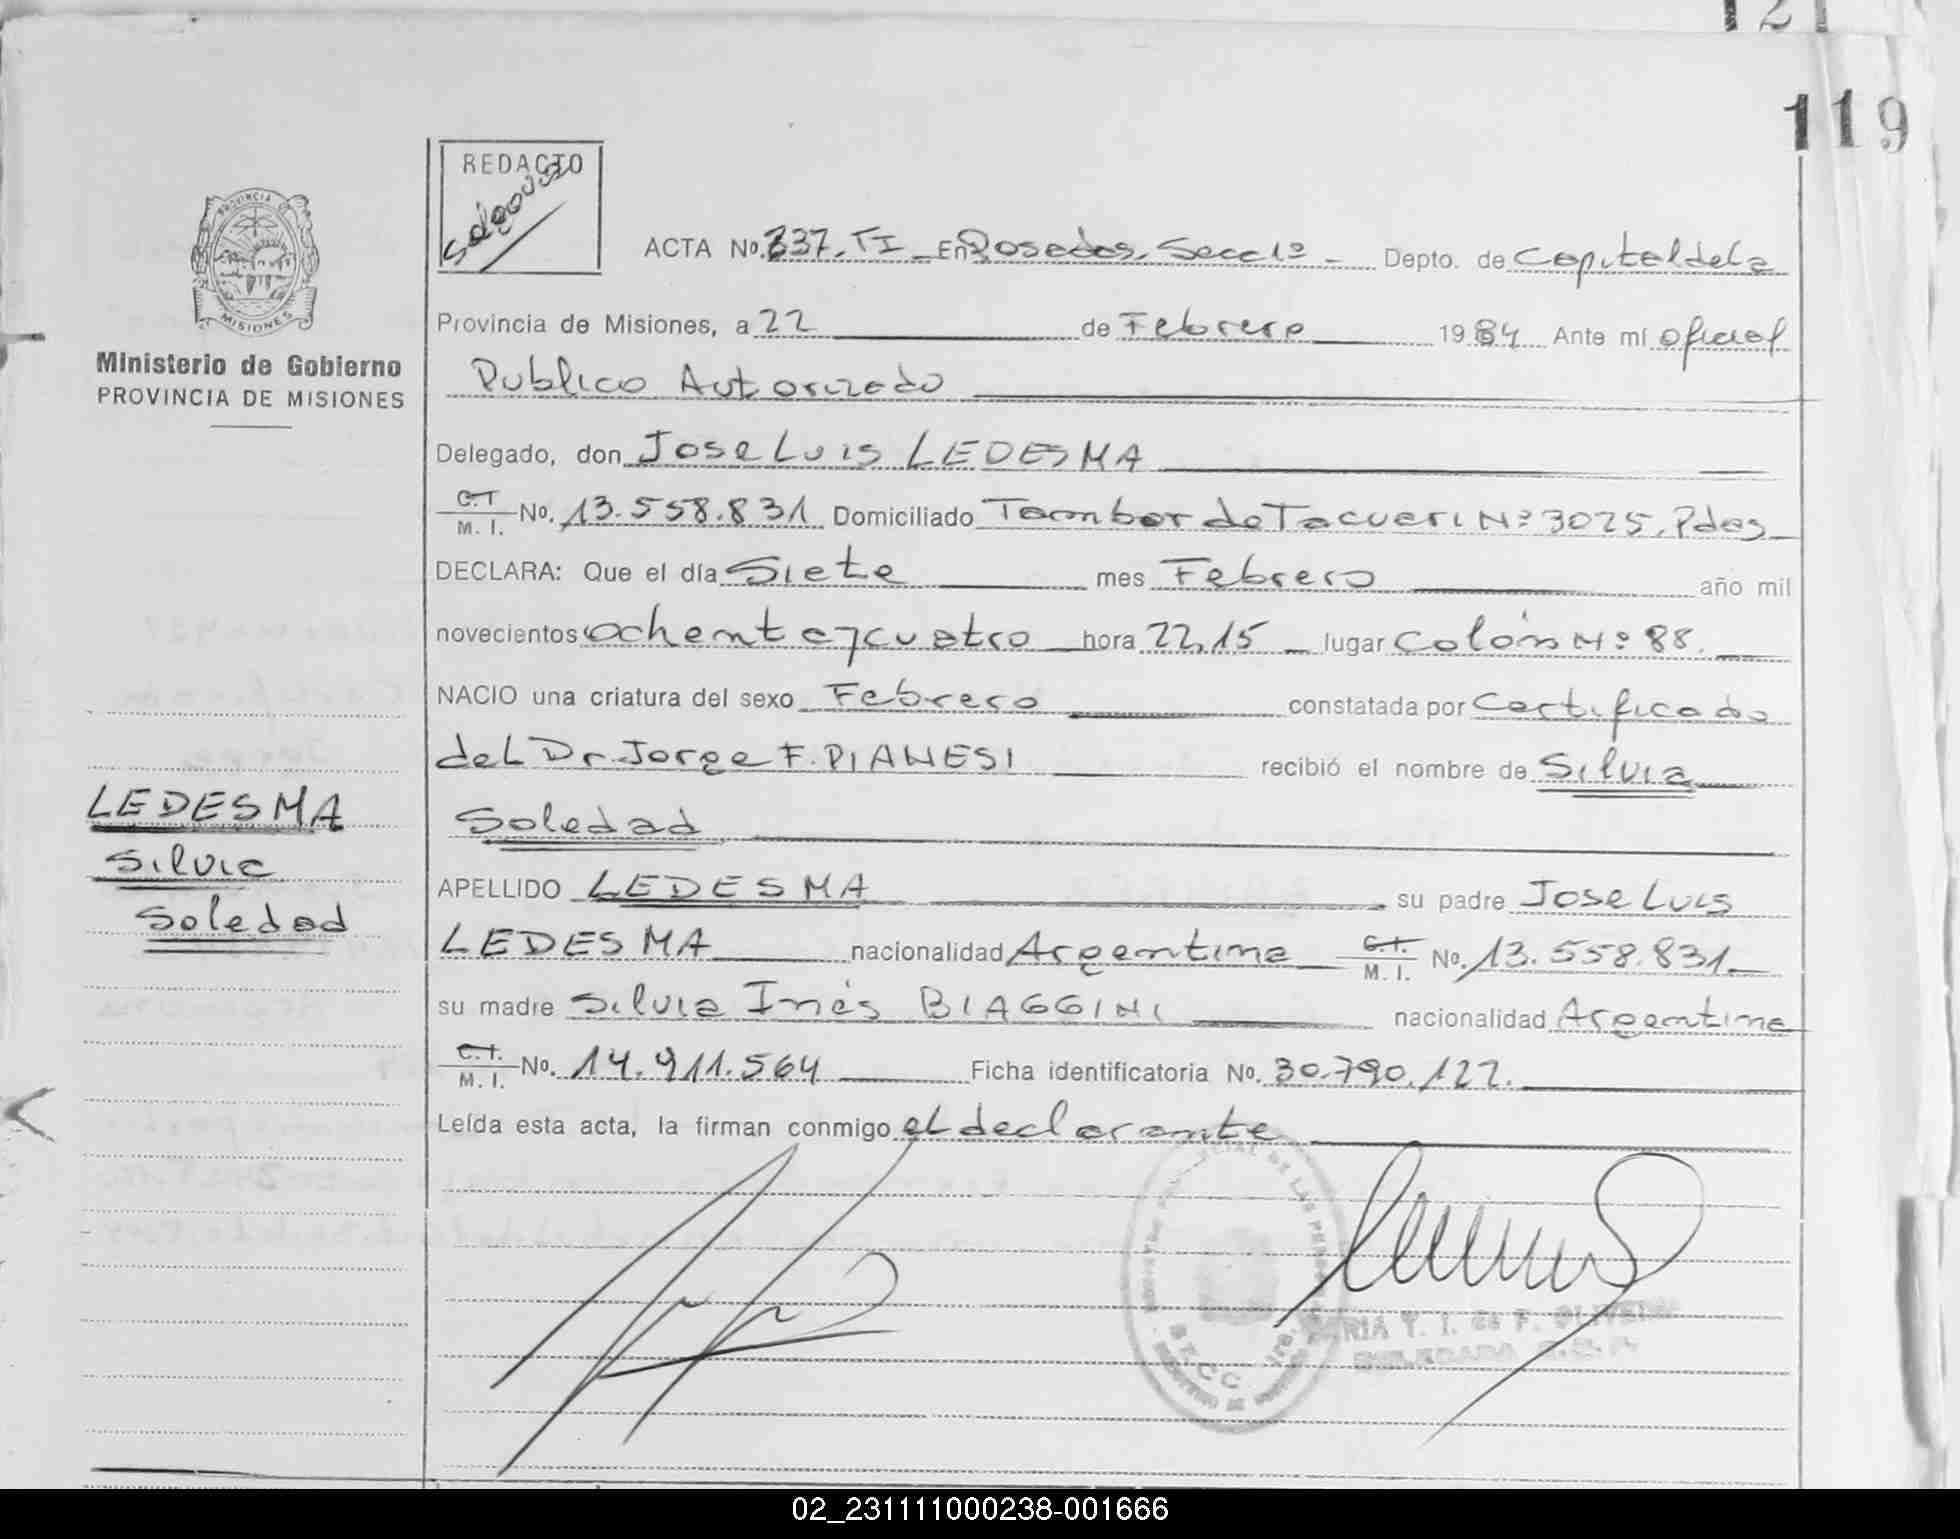 121
119
REDACTO
PROVINCIA DE
MISIONES
Ministerio de Gobierno
PROVINCIA DE MISIONES
ACTA No. 337. TI En Posadas. Secc 1º Depto. de Capital de la
Provincia de Misiones, a 22 de Febrero 1984 Ante mí oficial
Publico Autorizado
Delegado, don Jose Luis LEDESMA
C.I. M. I. No. 13.558.831 Domiciliado Tambor de Tacuari Nº 3025. Pdas
DECLARA: Que el día Siete mes Febrero año mil
novecientos ochenta y cuatro hora 22,15 lugar Colón Nº 88.
NACIO una criatura del sexo Febrero constatada por Certificado
del Dr. Jorge F. PIANESI recibió el nombre de Silvia
Soledad
APELLIDO LEDESMA su padre Jose Luis
LEDESMA nacionalidad Argentina C.I. M. I. No. 13.558.831
su madre Silvia Inés BIAGGINI nacionalidad Argentina
C.I. M. I. No. 14.911.564 Ficha identificatoria No. 30.790.122.
Leída esta acta, la firman conmigo el declarante
LEDESMA
Silvia
Soledad
SECC.
T. I. de F. OLIVEIRA
DELEGADA
02_231111000238-001666